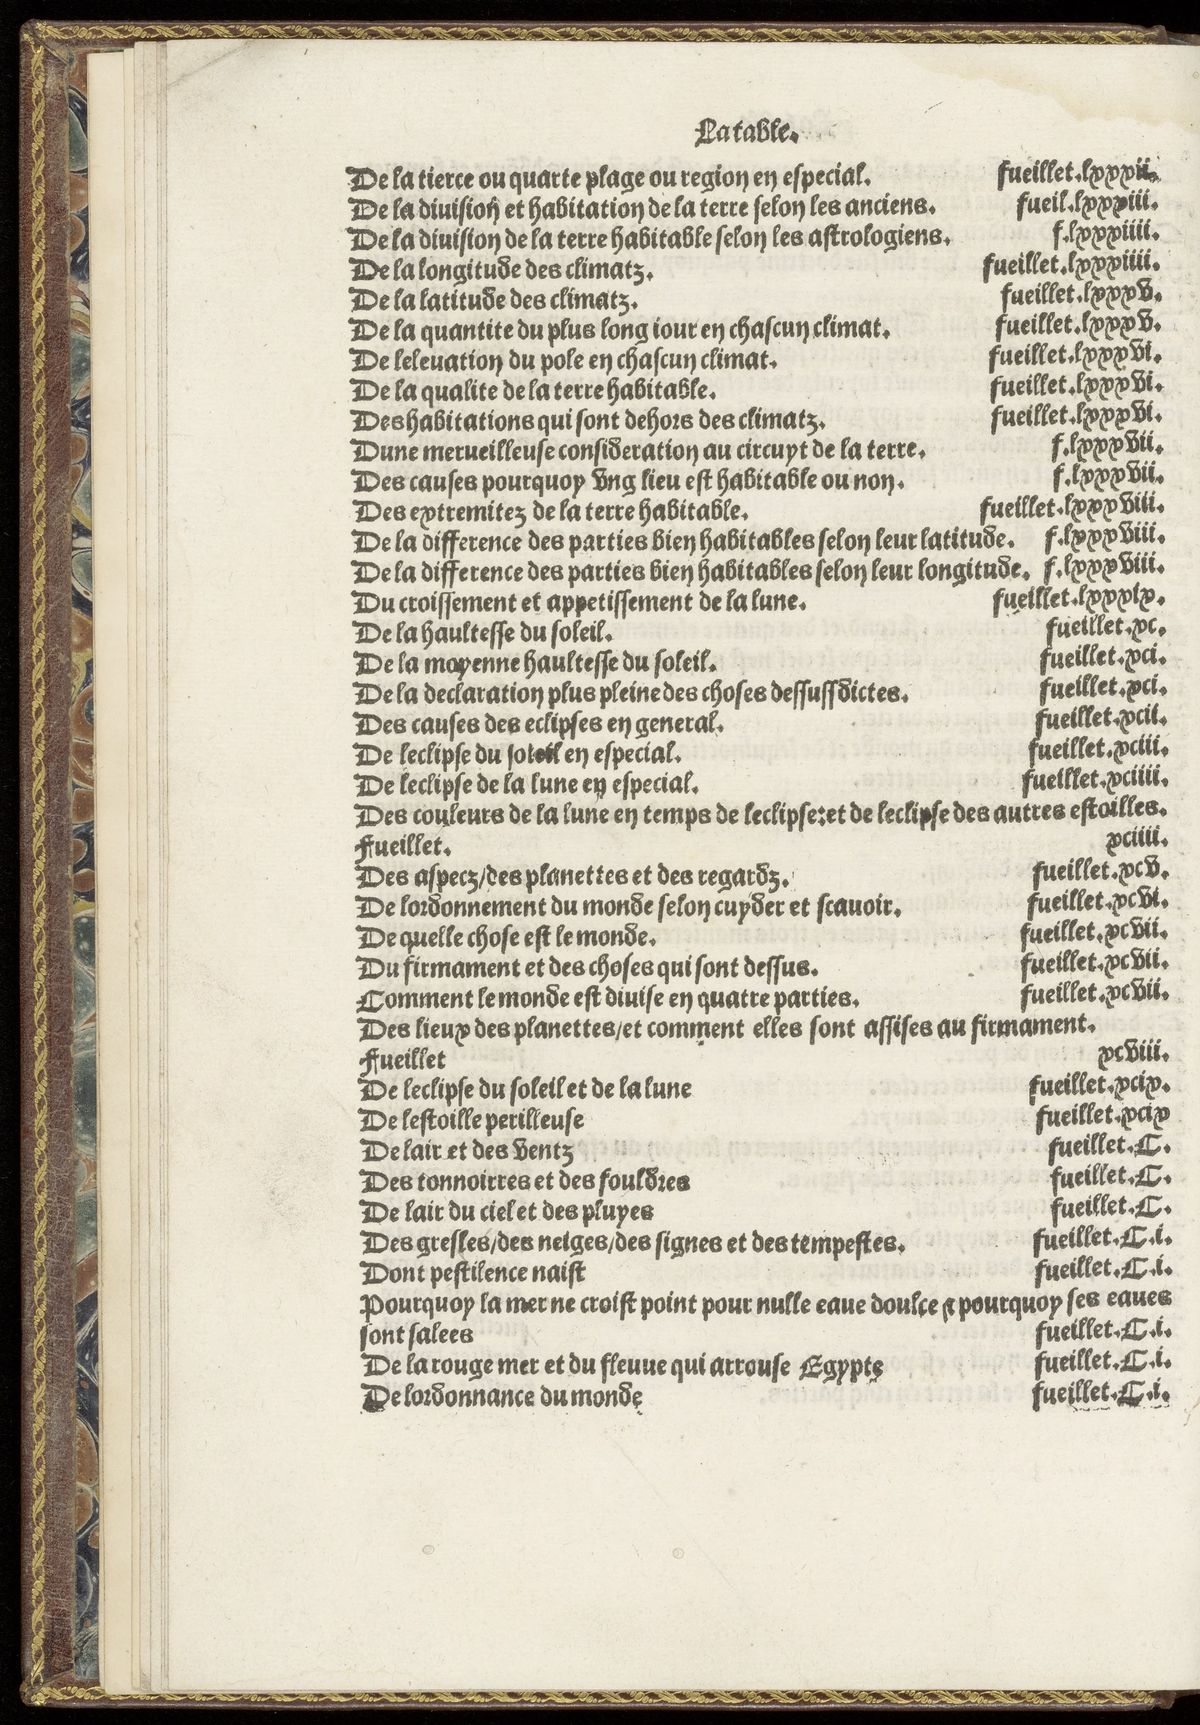 La table.
De la tierce ou quarte plage ou region en especial. fueillet.lxxxii.
De la diuision et habitation de la terre selon les anciens. fueil.lxxxiii.
De la diuision de la terre habitable selon les astrologiens. f.lxxxiiii.
De la longitude des climatz. fueillet.lxxxiiii.
De la latitude des climatz. fueillet.lxxxv.
De la quantite du plus long iour en chascun climat. fueillet.lxxxv.
De leleuation du pole en chascun climat. fueillet.lxxxvi.
De la qualite de la terre habitable. fueillet.lxxxvi.
Des habitations qui sont dehors des climatz. fueillet.lxxxvi.
Dune merueilleuse consideration au circuyt de la terre. f.lxxxvii.
Des causes pourquoy vng lieu est habitable ou non. f.lxxxvii.
Des extremitez de la terre habitable. fueillet.lxxxviii.
De la difference des parties bien habitables selon leur latitude. f.lxxxviii.
De la difference des parties bien habitables selon leur longitude. f.lxxxviii.
Du croissement et appetissement de la lune. fueillet.lxxxix.
De la haultesse du soleil. fueillet.xc.
De la moyenne haultesse du soleil. fueillet.xci.
De la declaration plus pleine des choses dessussdictes. fueillet.xci.
Des causes des eclipses en general. fueillet.xcii.
De leclipse du soleil en especial. fueillet.xciii.
De leclipse de la lune en especial. fueillet.xciiii.
Des couleurs de la lune en temps de leclipse:et de leclipse des autres estoilles.
Fueillet. xciiii.
Des aspecz/des planettes et des regardz. fueillet.xcv.
De lordonnement du monde selon cuyder et scauoir. fueillet.xcvi.
De quelle chose est le monde. fueillet.xcvii.
Du firmament et des choses qui sont dessus. fueillet.xcvii.
Comment le monde est diuise en quatre parties. fueillet.xcvii.
Des lieux des planettes/et comment elles sont assises au firmament.
Fueillet xcviii.
De leclipse du soleil et de la lune fueillet.xcix.
De lestoille perilleuse fueillet.xcix
De lair et des ventz fueillet.C.
Des tonnoirres et des fouldres fueillet.C.
De lair du ciel et des pluyes fueillet.C.
Des gresles/des neiges/des signes et des tempestes. fueillet.C.i.
Dont pestilence naist fueillet.C.i.
Pourquoy la mer ne croist point pour nulle eaue doulce ⁊ pourquoy ses eaues
sont salees fueillet.C.i.
De la rouge mer et du fleuue qui arrouse Egypte fueillet.C.i.
De lordonnance du monde fueillet.C.i.